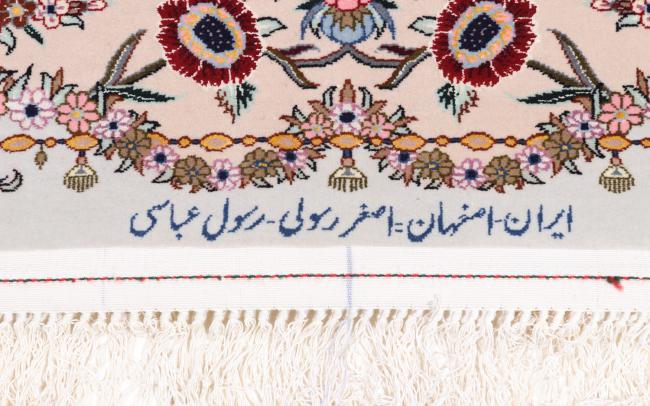 ایران - اصفهان = اصغر رسولی - رسول عباسی